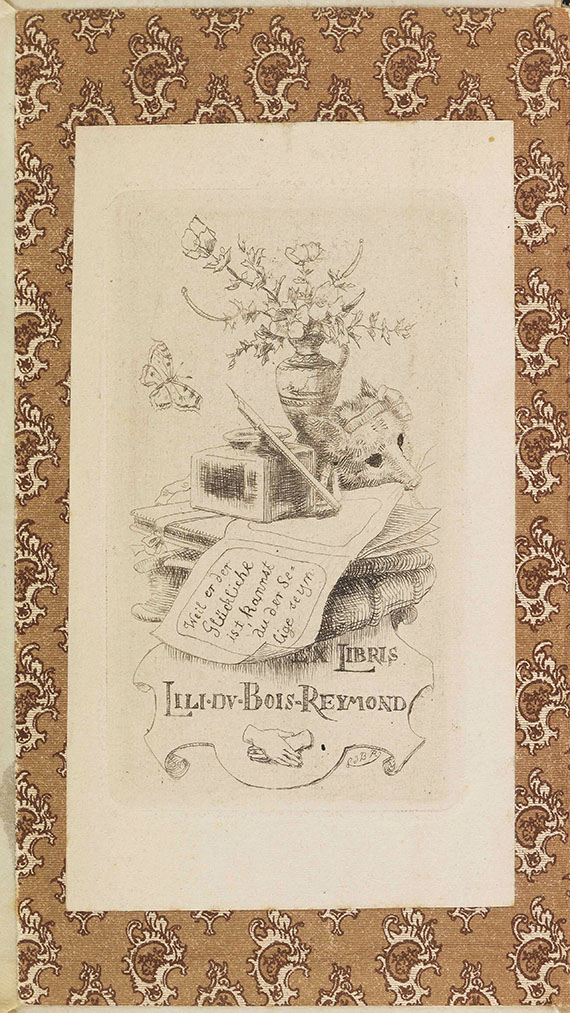 Weil er der
Glückliche
ist, kannst
du der Se-
lige seyn.
EX LIBRIS
LILI·DV·BOIS-REYMOND